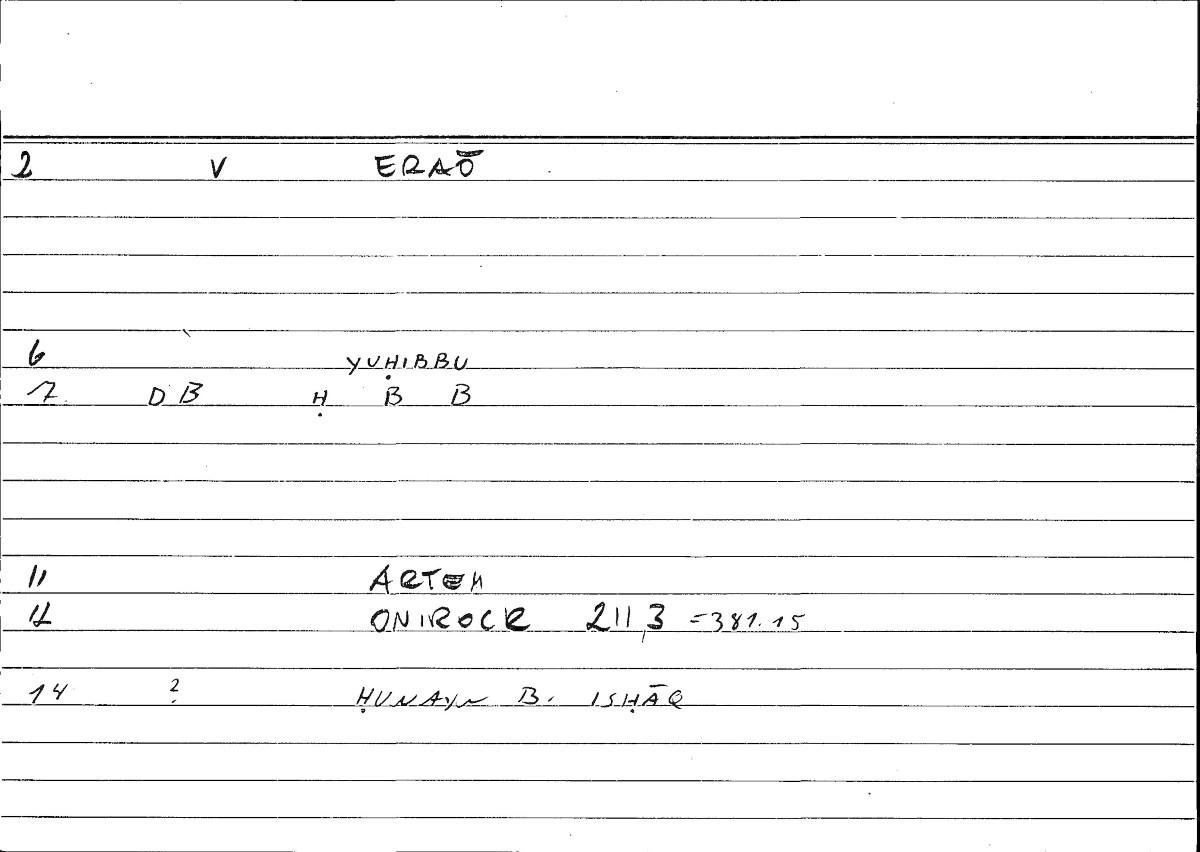 2 V ERAŌ
6 YUḤIBBU
7. DB Ḥ B B
11 ARTEM
12 ONIROCR 211,3 =381.15
14 ? ḤUNAYN B. ISḤĀQ